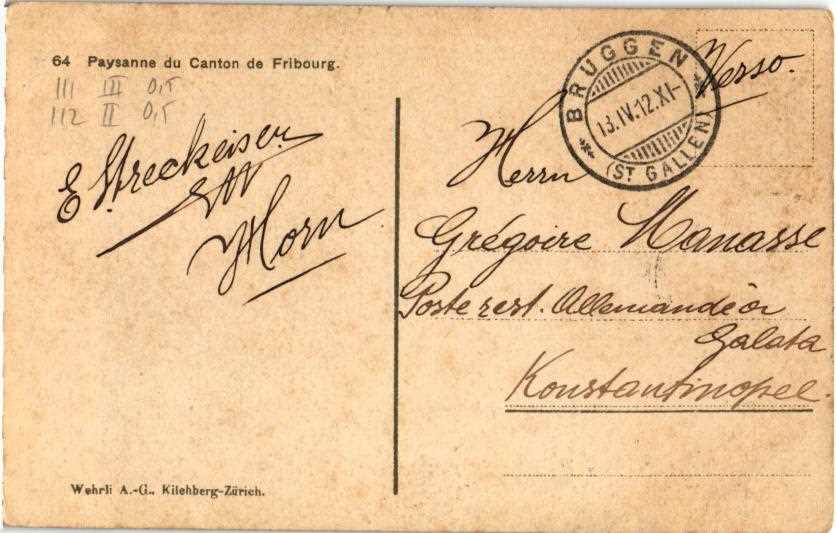 64 Paysanne du Canton de Fribourg.
111 III 0,5
112 II 0,5
E Streckeisen
Horn
Wehrli A.-G., Kilchberg-Zürich.
BRUGGEN
13.IV.12.XI-
(ST GALLEN)
Verso.
Herrn
Grégoire Manasse
Poste rest. Allemande à
Galata
Konstantinopel.